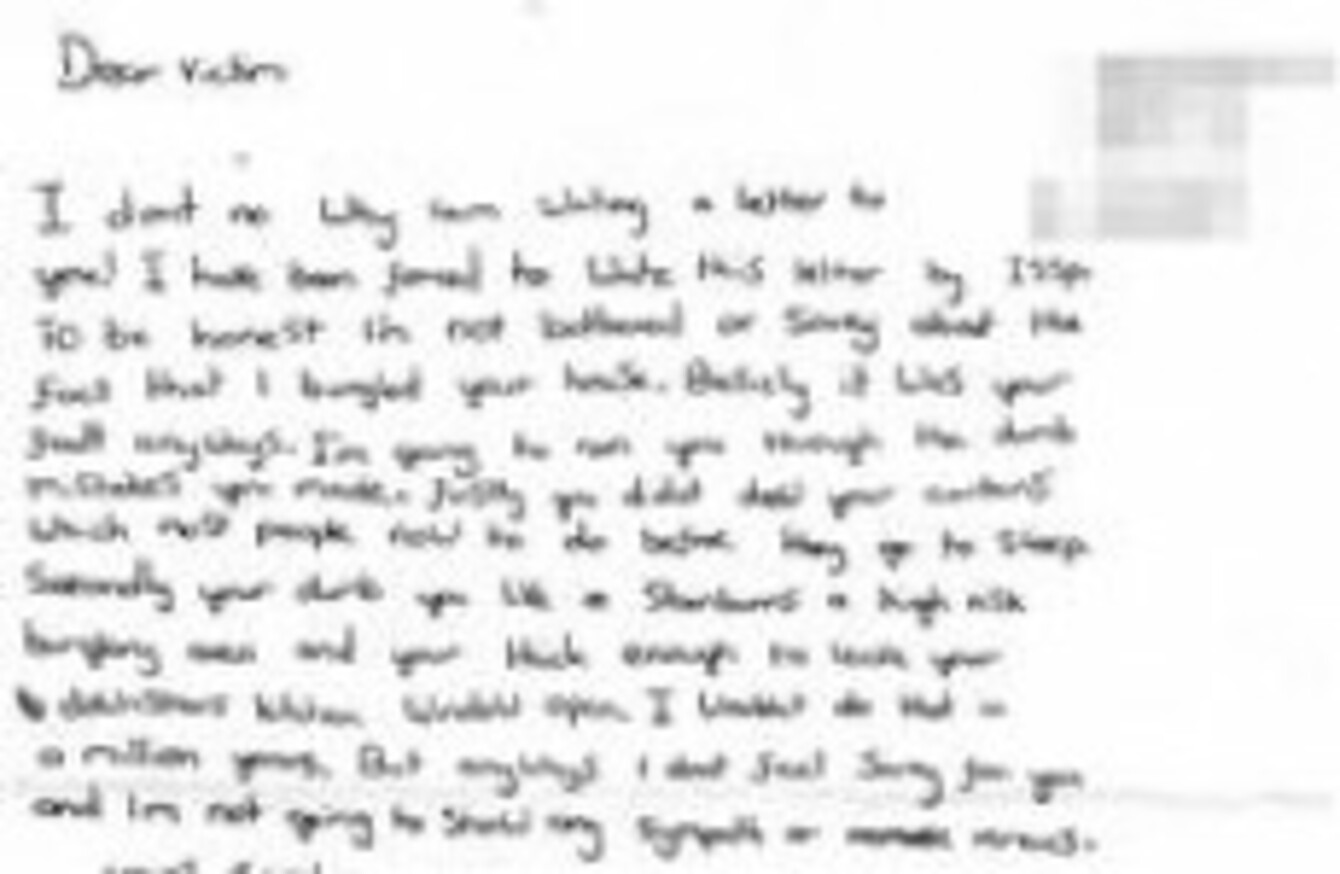 Dear Victim
I dont no Why iam writing a letter to
you! I have been forced to Write this letter by ISSP.
To be honest I'm not bothered or Sorry about the
fact that I burgled your house. Basicly it Was your
fault anyways. I'm going to run you through the dumb
mistakes you made. Firstly you didnt draw your curtains
Which most people now to do before they go to Sleep.
Secondly your dumb you live in Stanburns a high risk
burgling area and your thick enough to leave your
downstairs kitchen Window open. I Wouldnt do that in
a million years. But anyways I dont feel Sorry for you
and I'm not going to Show any Sympath or